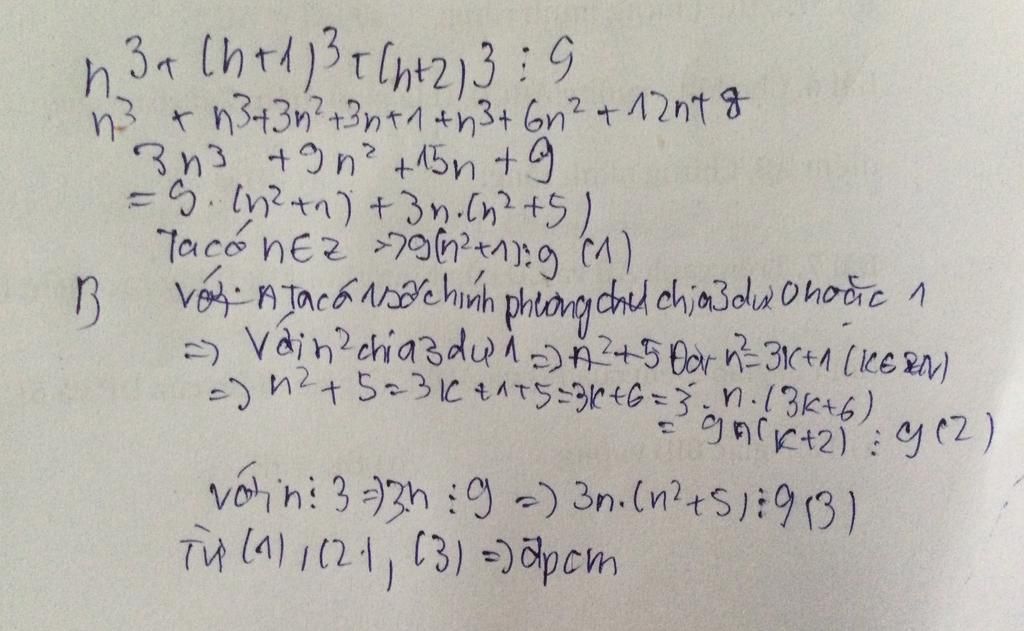 n³ + (n+1)³ + (n+2)³ ⋮ 9
n³ + n³+3n²+3n+1 +n³+ 6n² + 12n+8
3n³ +9n² +15n +9
= 9.(n²+1) + 3n.(n²+5)
Ta có n∈Z => 9(n²+1)⋮9 (1)
Ta có 1 số chính phương chia 3 dư 0 hoặc 1
=> Với n² chia 3 dư 1 => n²+5 Đặt n²=3K+1 (K∈N)
=> n² + 5 = 3K+1+5=3K+6 = 3.n.(3K+6)
= 9n(K+2) ⋮ 9(2)
với n⋮3=>3n⋮9 => 3n.(n²+5)⋮9(3)
Từ (1),(2), (3) => đpcm